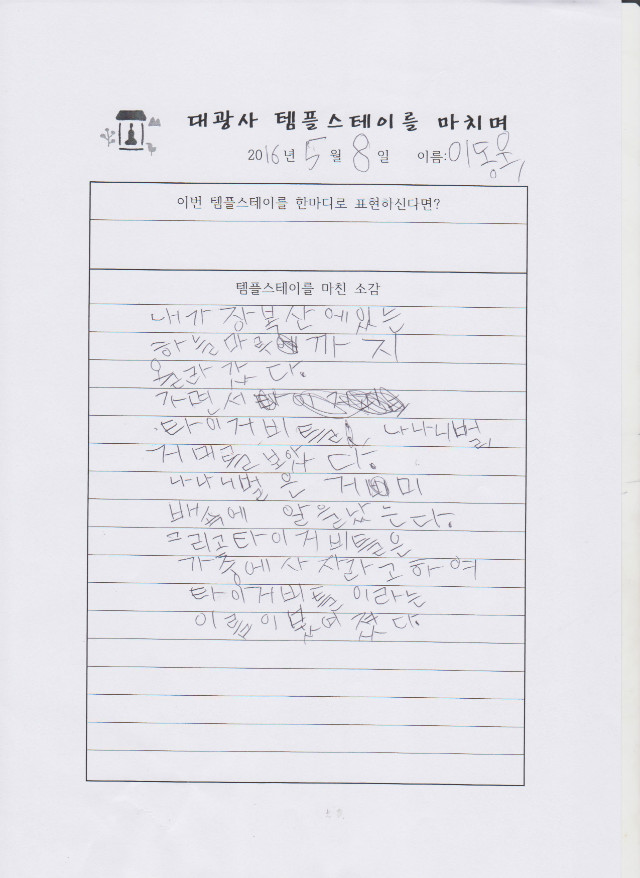 대광사 템플스테이를 마치며
2016년 5월 8일 이름:이동욱
이번 템플스테이를 한마디로 표현하신다면?
템플스테이를 마친 소감
내가 장복산에있는
하늘마루 까지
올라 갔다.
가면서
타이거비틀, 나나니벌
거미를 보았다.
나나니벌은 거미
배속에 알을낳는다.
그리고타이거비틀은
가충에사자라고하여
타이거비틀이라는
이름이붙어졌다.